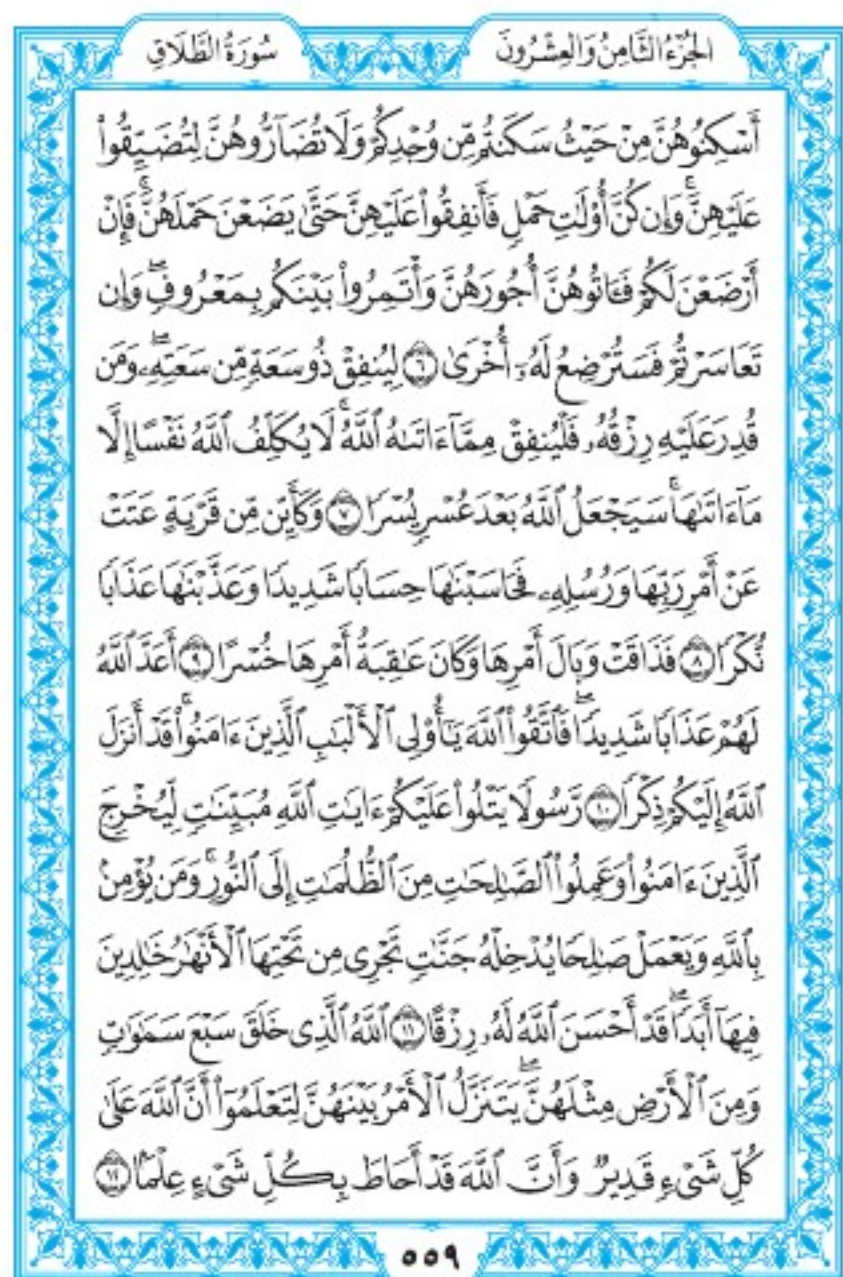 الجُزْءُ الثَّامِنُ وَالعِشْرُونَ
سُورَةُ الطَّلَاقِ
أَسْكِنُوهُنَّ مِنْ حَيْثُ سَكَنتُم مِّن وُجْدِكُمْ وَلَا تُضَآرُّوهُنَّ لِتُضَيِّقُوا۟
عَلَيْهِنَّ ۚ وَإِن كُنَّ أُو۟لَـٰتِ حَمْلٍ فَأَنفِقُوا۟ عَلَيْهِنَّ حَتَّىٰ يَضَعْنَ حَمْلَهُنَّ ۚ فَإِنْ
أَرْضَعْنَ لَكُمْ فَـَٔاتُوهُنَّ أُجُورَهُنَّ وَأْتَمِرُوا۟ بَيْنَكُم بِمَعْرُوفٍ ۖ وَإِن
تَعَاسَرْتُمْ فَسَتُرْضِعُ لَهُۥٓ أُخْرَىٰ ٦ لِيُنفِقْ ذُو سَعَةٍ مِّن سَعَتِهِۦ ۖ وَمَن
قُدِرَ عَلَيْهِ رِزْقُهُۥ فَلْيُنفِقْ مِمَّآ ءَاتَىٰهُ ٱللَّهُ ۚ لَا يُكَلِّفُ ٱللَّهُ نَفْسًا إِلَّا
مَآ ءَاتَىٰهَا ۚ سَيَجْعَلُ ٱللَّهُ بَعْدَ عُسْرٍ يُسْرًا ٧ وَكَأَيِّن مِّن قَرْيَةٍ عَتَتْ
عَنْ أَمْرِ رَبِّهَا وَرُسُلِهِۦ فَحَاسَبْنَـٰهَا حِسَابًا شَدِيدًا وَعَذَّبْنَـٰهَا عَذَابًا
نُّكْرًا ٨ فَذَاقَتْ وَبَالَ أَمْرِهَا وَكَانَ عَـٰقِبَةُ أَمْرِهَا خُسْرًا ٩ أَعَدَّ ٱللَّهُ
لَهُمْ عَذَابًا شَدِيدًا ۖ فَٱتَّقُوا۟ ٱللَّهَ يَـٰٓأُو۟لِى ٱلْأَلْبَـٰبِ ٱلَّذِينَ ءَامَنُوا۟ ۚ قَدْ أَنزَلَ
ٱللَّهُ إِلَيْكُمْ ذِكْرًا ١٠ رَّسُولًا يَتْلُوا۟ عَلَيْكُمْ ءَايَـٰتِ ٱللَّهِ مُبَيِّنَـٰتٍ لِّيُخْرِجَ
ٱلَّذِينَ ءَامَنُوا۟ وَعَمِلُوا۟ ٱلصَّـٰلِحَـٰتِ مِنَ ٱلظُّلُمَـٰتِ إِلَى ٱلنُّورِ ۚ وَمَن يُؤْمِنۢ
بِٱللَّهِ وَيَعْمَلْ صَـٰلِحًا يُدْخِلْهُ جَنَّـٰتٍ تَجْرِى مِن تَحْتِهَا ٱلْأَنْهَـٰرُ خَـٰلِدِينَ
فِيهَآ أَبَدًا ۖ قَدْ أَحْسَنَ ٱللَّهُ لَهُۥ رِزْقًا ١١ ٱللَّهُ ٱلَّذِى خَلَقَ سَبْعَ سَمَـٰوَٰتٍ
وَمِنَ ٱلْأَرْضِ مِثْلَهُنَّ ۖ يَتَنَزَّلُ ٱلْأَمْرُ بَيْنَهُنَّ لِتَعْلَمُوٓا۟ أَنَّ ٱللَّهَ عَلَىٰ
كُلِّ شَىْءٍ قَدِيرٌ وَأَنَّ ٱللَّهَ قَدْ أَحَاطَ بِكُلِّ شَىْءٍ عِلْمًۢا ١٢
٥٥٩